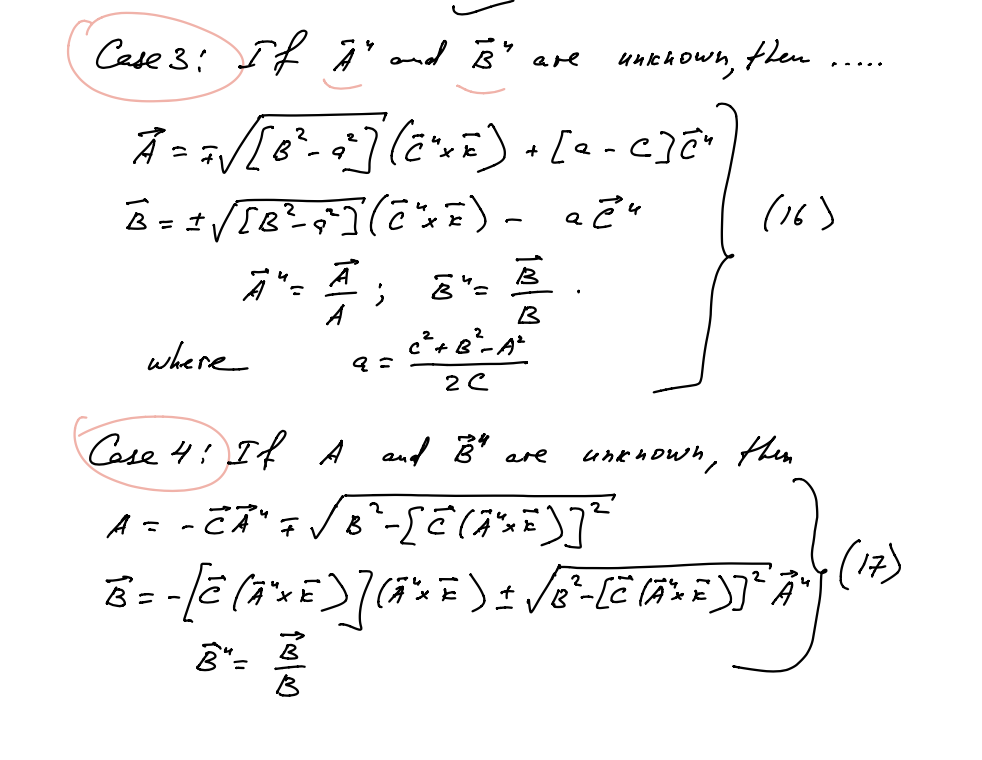 Case 3: If A̅ᵘ and B̅ᵘ are unknown, then .....
A⃗ = ∓√[B² - a²] (C⃗ᵘ × k̅) + [a - C] C⃗ᵘ
B⃗ = ±√[B² - a²] (C⃗ᵘ × k̅) - a C⃗ᵘ
(16)
A̅ᵘ = A⃗/A ; B̅ᵘ = B⃗/B .
where a = (C² + B² - A²)/(2C)
Case 4: If A and B⃗ᵘ are unknown, then
A = - C⃗ A⃗ᵘ ∓ √(B² - [C⃗ (A̅ᵘ × k̅)]²)
B⃗ = - [C⃗ (A̅ᵘ × k̅)] (A̅ᵘ × k̅) ± √(B² - [C⃗ (A̅ᵘ × k̅)]²) A⃗ᵘ
(17)
B⃗ᵘ = B⃗/B